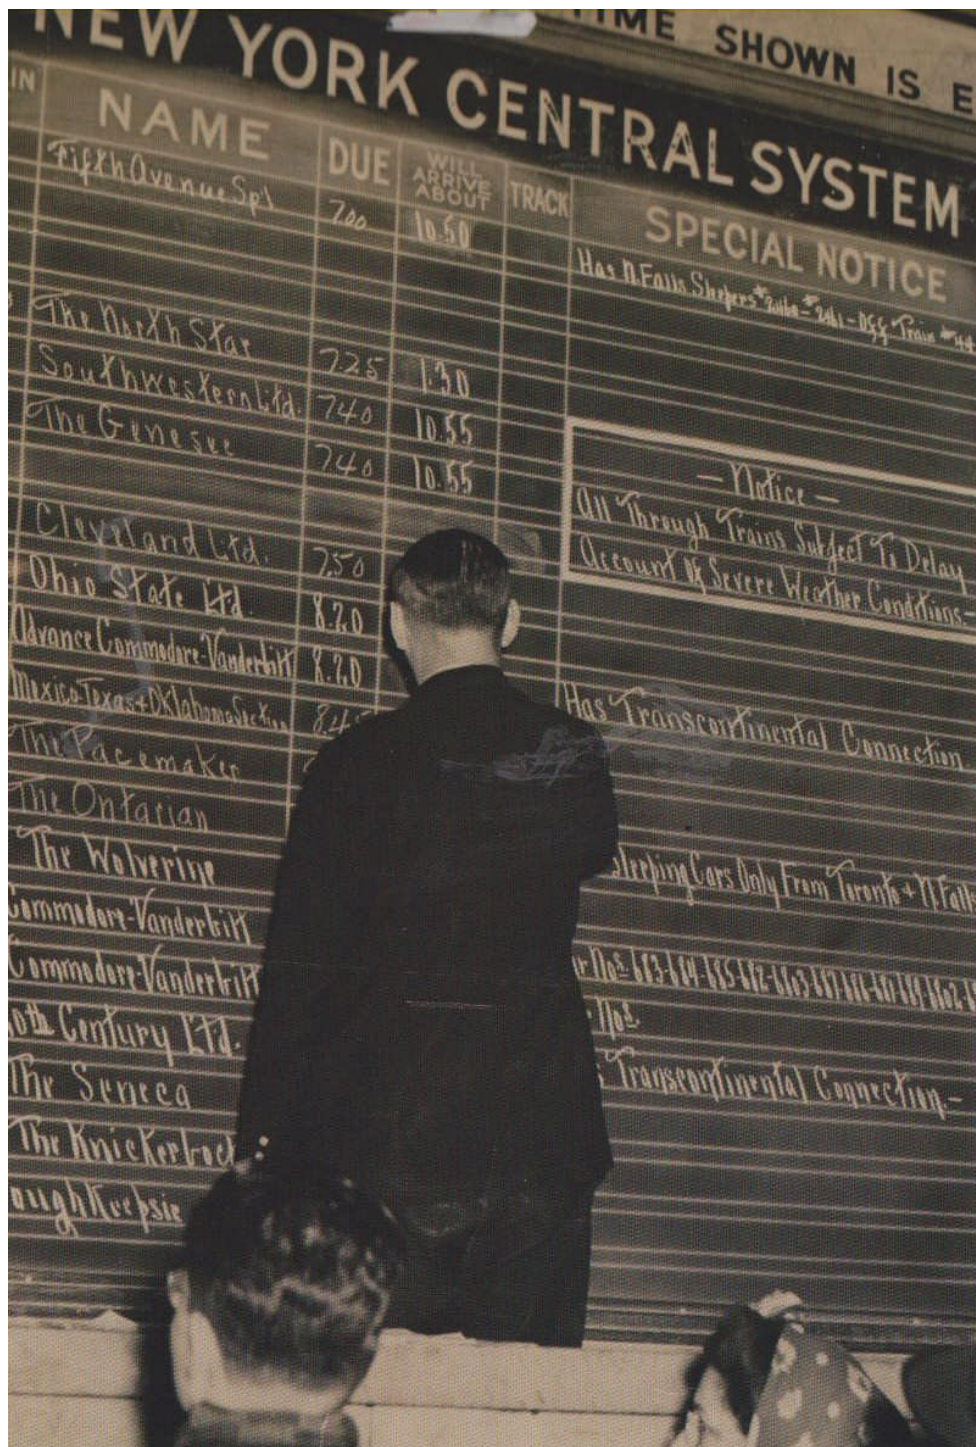 TIME SHOWN IS E
NEW YORK CENTRAL SYSTEM
IN NAME DUE WILL ARRIVE ABOUT TRACK SPECIAL NOTICE
Fifth Avenue Spl 700 10.50 Has N. Falls Sleepers Train
The North Star 725 1.30
Southwestern Ltd. 740 10.55
The Genesee 740 10.55
— Notice —
All Through Trains Subject To Delay
Account Of Severe Weather Conditions-
Cleveland Ltd. 750
Ohio State Ltd. 8.20
Advance Commodore-Vanderbilt 8.20
Mexico Texas & Oklahoma Section 845 Has Transcontinental Connection
The Pacemaker
The Ontarian
The Wolverine Sleeping Cars Only From Toronto & N. Fall
Commodore-Vanderbilt
Commodore-Vanderbilt r Nos.
0th Century Ltd. Nos.
The Seneca Transcontinental Connection.-
The Knickerbock
oughkeepsie